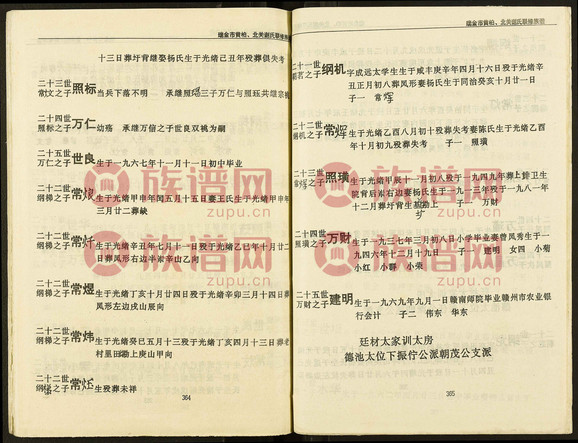 十三日葬圩背继娶杨氏生于光绪己丑年殁葬俱失考
二十三世
常炆之子 照标 当兵下落不明 承继照 三子万仁与照珏共继宗祧
二十四世
照标之子 万仁 幼殇 承继万信之子世良双祧为嗣
二十五世
万仁之子 世良 生于一九六七年十一月十一日初中毕业
二十二世
纲梯之子 生于光绪甲申年闰五月十五日娶王氏生于光绪甲申年
三月廿二葬缺
二十二世
纲梯之子 生于光绪辛丑年七月十一日殁于光绪乙巳年十月廿二
日葬凤形右边半浓辛山乙向
二十二世
纲梯之子 常煜 生于光绪丁亥十月廿四日殁于光绪辛卯三月十四日葬
凤形左边戌山辰向
二十二世
纲梯之子 常炜 生于光绪癸巳五月十三殁于光绪丁亥四月十三日葬
村里田 上庚山甲向
二十二世
纲梯之子 生殁葬未祥
364
瑞金市黄柏、北关谢氏联修族谱
二十一世
朝茗之子 纲机 字成远太学生生于咸丰庚辛年四月十六日殁于光绪辛
丑正月初八葬凤形娶杨氏生于同治癸亥十月廿一日
子一 常
二十二世
纲机之子 生于光绪乙酉八月初十殁葬失考娶陈氏生于光绪乙酉
年十月初九殁葬失考 子一 照璜
二十三世
照璜 生于光绪甲辰十一月初八殁于一九四九年葬上 卫生
院背后素右边娶杨氏生于一九一三年殁于一九八一年
十二月葬圩背生 上 子一 万财
二十四世
照璜之子 万财 生于一九三七年三月初八日小学毕业娶曾凤秀生于一
九四六年十二月十九日 子一 建明 女四 小菊
小红 小群 小荣
二十五世
万财之子 建明 生于一九六九年九月一日赣南师院毕业赣州市农业银
行会计 子二 伟东 华东
廷材太家训太房
德池太位下振伫公派朝茂公支派
365
族谱网
zupu.cn
族谱网
zupu.cn
族谱网
zupu.cn
族谱网
zupu.cn